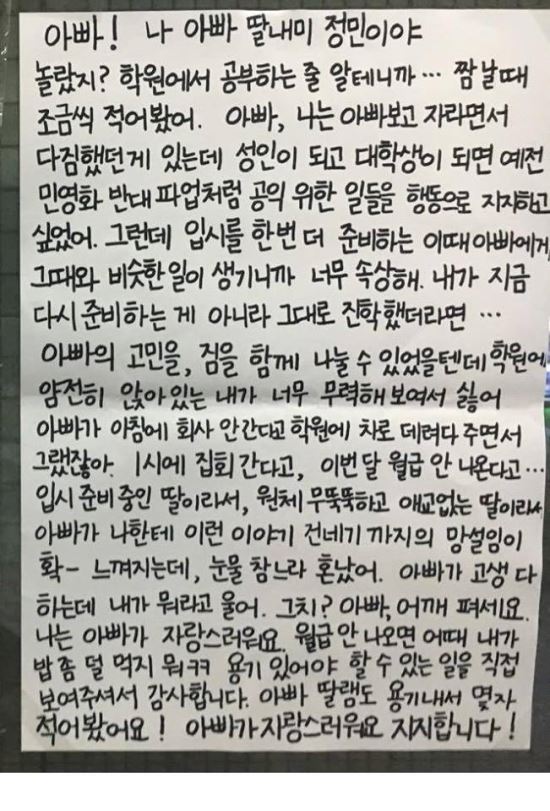 아빠! 나 아빠 딸내미 정민이야
놀랐지? 학원에서 공부하는 줄 알테니까… 짬날때
조금씩 적어봤어. 아빠, 나는 아빠보고 자라면서
다짐했던게 있는데 성인이 되고 대학생이 되면 예전
민영화 반대 파업처럼 공익 위한 일들을 행동으로 지지하고
싶었어. 그런데 입시를 한번 더 준비하는 이때 아빠에게,
그때와 비슷한 일이 생기니까 너무 속상해. 내가 지금
다시 준비하는 게 아니라 그대로 진학했더라면 …
아빠의 고민을, 짐을 함께 나눌 수 있었을텐데 학원에
얌전히 앉아있는 내가 너무 무력해 보여서 싫어
아빠가 아침에 회사 안간다고 학원에 차로 데려다 주면서
그랬잖아. 1시에 집회 간다고, 이번 달 월급 안 나온다고…
입시 준비 중인 딸이라서, 원체 무뚝뚝하고 애교없는 딸이라서
아빠가 나한테 이런 이야기 건네기 까지의 망설임이
확- 느껴지는데, 눈물 참느라 혼났어. 아빠가 고생 다
하는데 내가 뭐라고 울어. 그치? 아빠, 어깨 펴세요.
나는 아빠가 자랑스러워요. 월급 안 나오면 어때 내가
밥 좀 덜 먹지 뭐ㅋㅋ 용기 있어야 할 수 있는 일을 직접
보여주셔서 감사합니다. 아빠 딸램도 용기내서 몇자
적어봤어요! 아빠가 자랑스러워요 지지합니다!